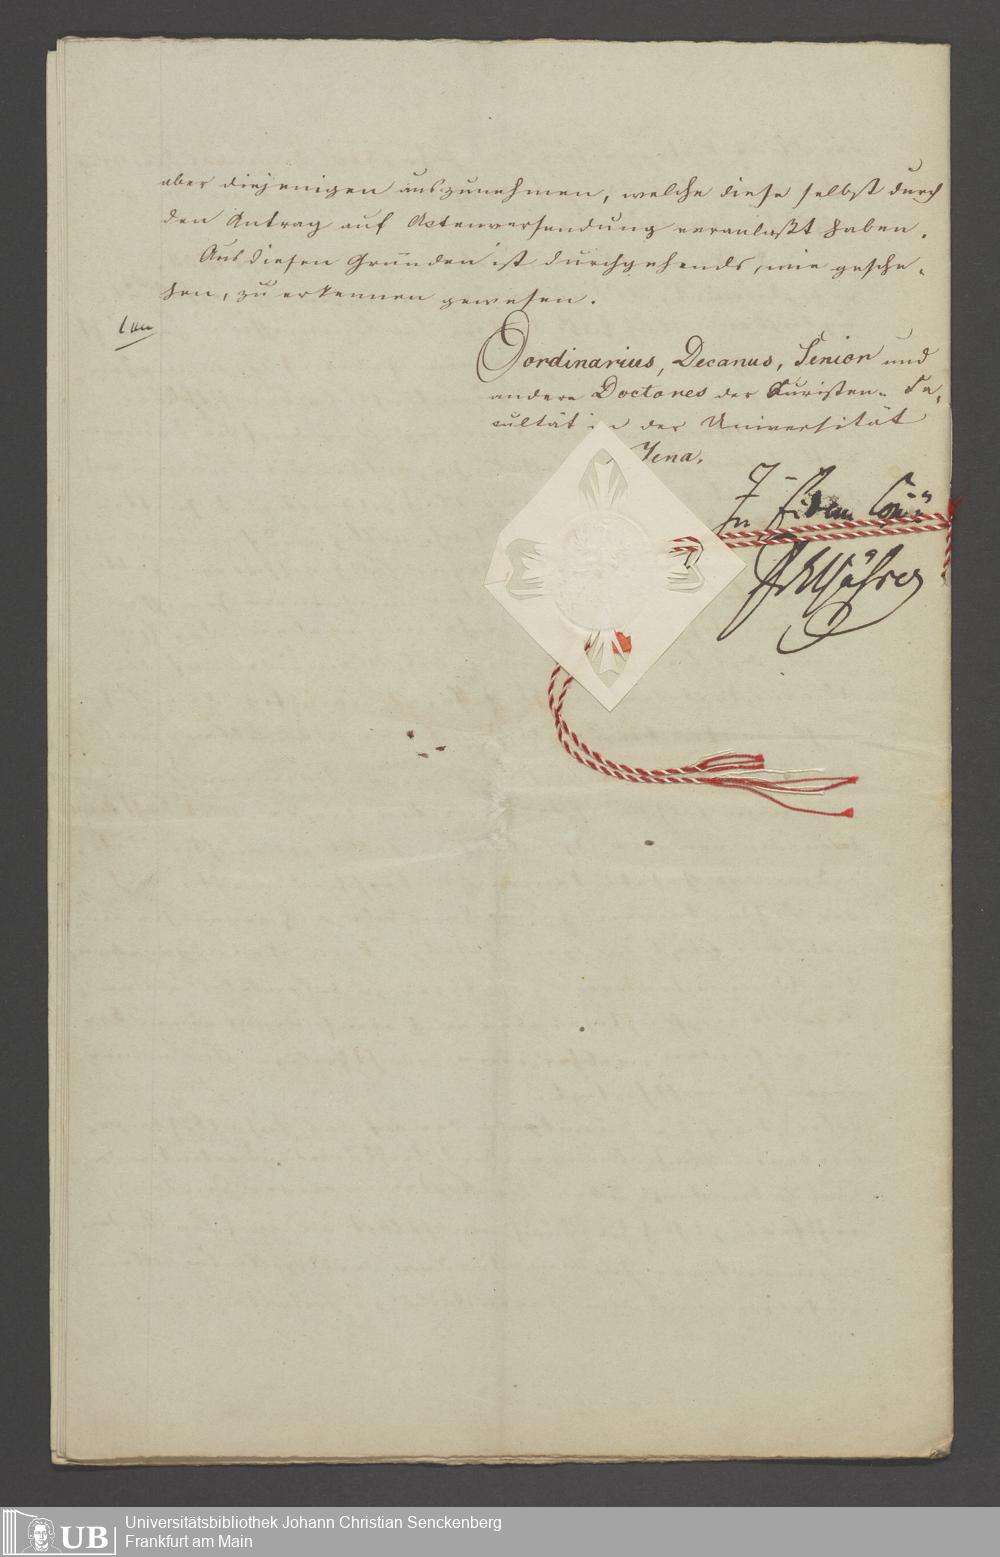 aber diejenigen auszunehmen, welche diese selbst durch
den Antrag auf Actenversendung veranlaßt haben.
Aus diesen Gründen ist durchgehends, wie gesche-
hen, zu erkennen gewesen.
Oordinarius, Decanus, Senior und
andere Doctores der Juristen- Fa-
cultät in der Universität
Jena.
In fidem Copiæ
UB
Universitätsbibliothek Johann Christian Senckenberg
Frankfurt am Main